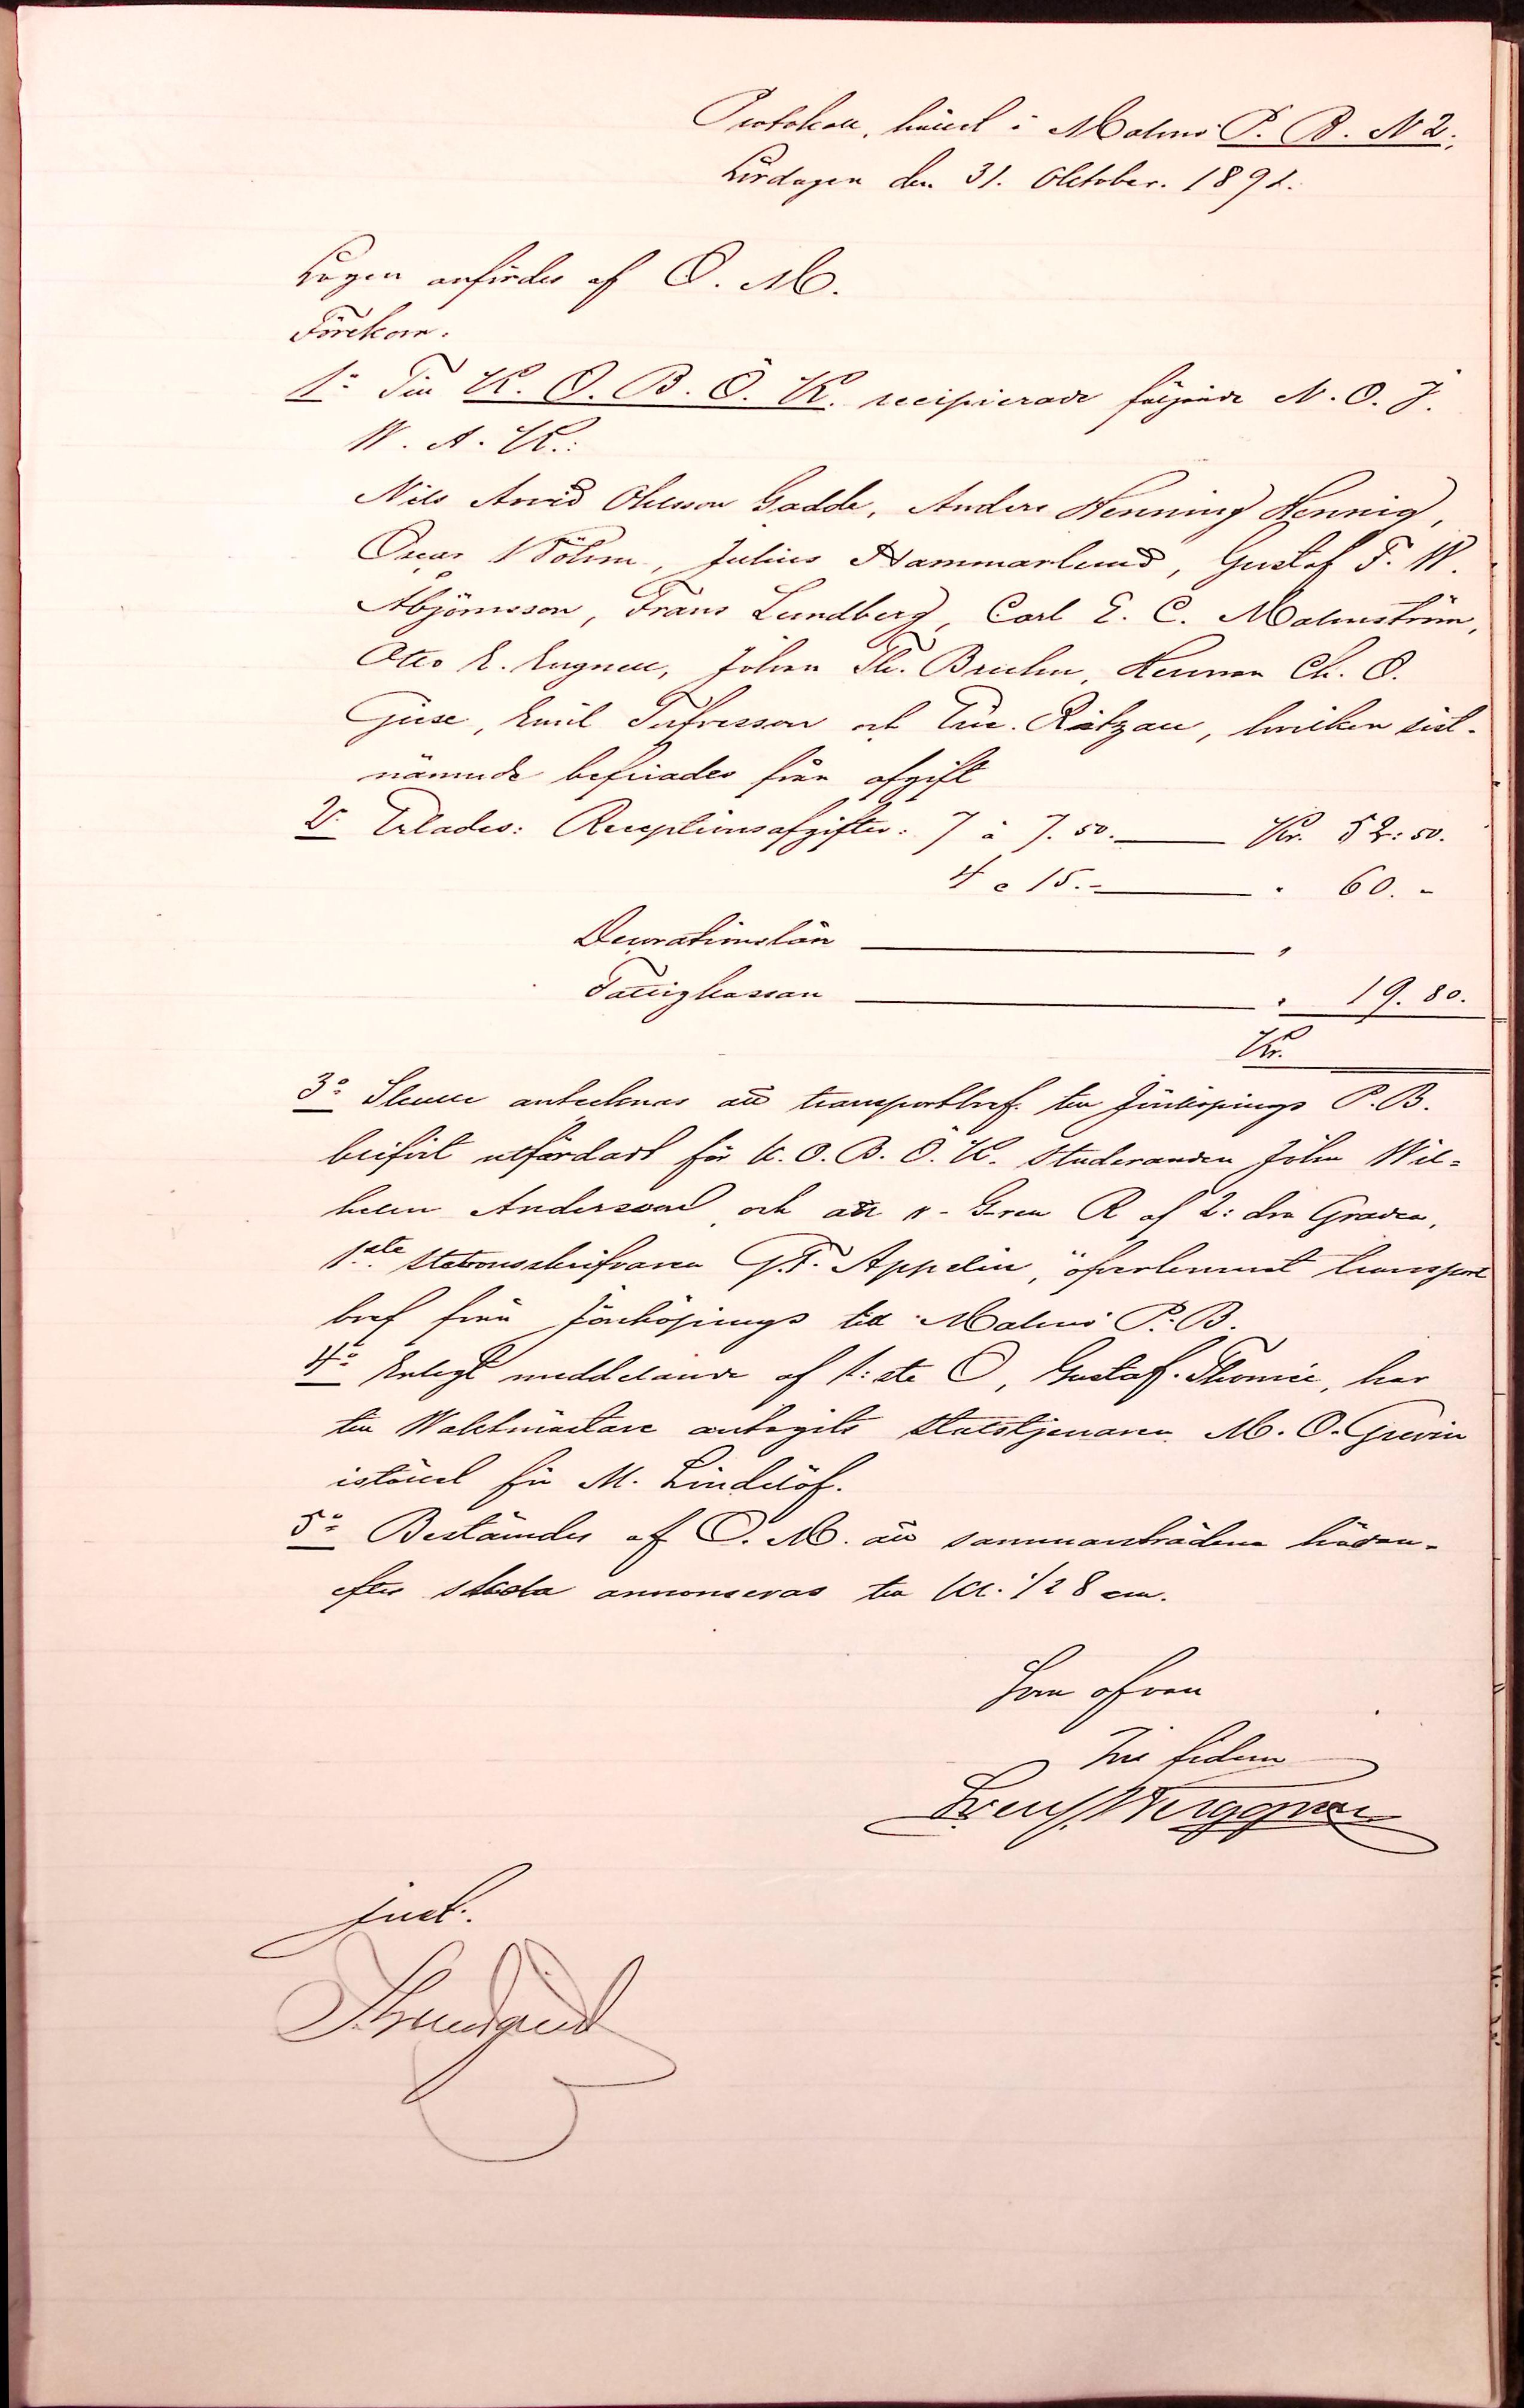 Protokoll, hållet i Malmö P. B. N 2,
Lördagen den 31. Oktober. 1891.
Logen anfördes af O. M.
Förekom.
1º Till K. O. B. Ö. K. recipierade följande N. O. J.
W. A. K.:
Nils Arvid Ohlsson Gadde, Anders Henning Hennig,
Oscar Böhm, Julius Hammarlund, Gustaf F. W.
Åbjörnsson, Frans Lundberg, Carl E. C. Malmström,
Otto E. Engnell, Johan Th. Bruhn, Herman Ch. O.
Giese, Emil Tufvesson och Ratzau, hvilken sist-
nämnde befriades från afgift
2º Erlades: Receptionsafgifter: 7 à 7.50. Kr. 52:50.
4 à 15.- " 60. -
Decorationslån "
Fattigkassan " 19.80.
Kr.
3º Skulle antecknas att transportbref till Jönköpings P. B.
blifvit utfärdadt för K. O. B. Ö. K. Studeranden John Wil-
helm Andersson och att R af 2: dra Graden,
1ste Stationsskrifvaren G. F. Appelin, öfverlemnat transport
bref från Jönköpings till Malmö P. B.
4º Enligt meddelande af 1: ste O, Gustaf Thomée, har
till Waktmästare antagits Stadstjenaren M. O. Grevin
istället för M. Lindelöf.
5º Bestämdes af O. M. att sammanträdena hädan-
efter skola annonseras till Kl. 1/2 8 em.
Som ofvan
In fidem
Just.